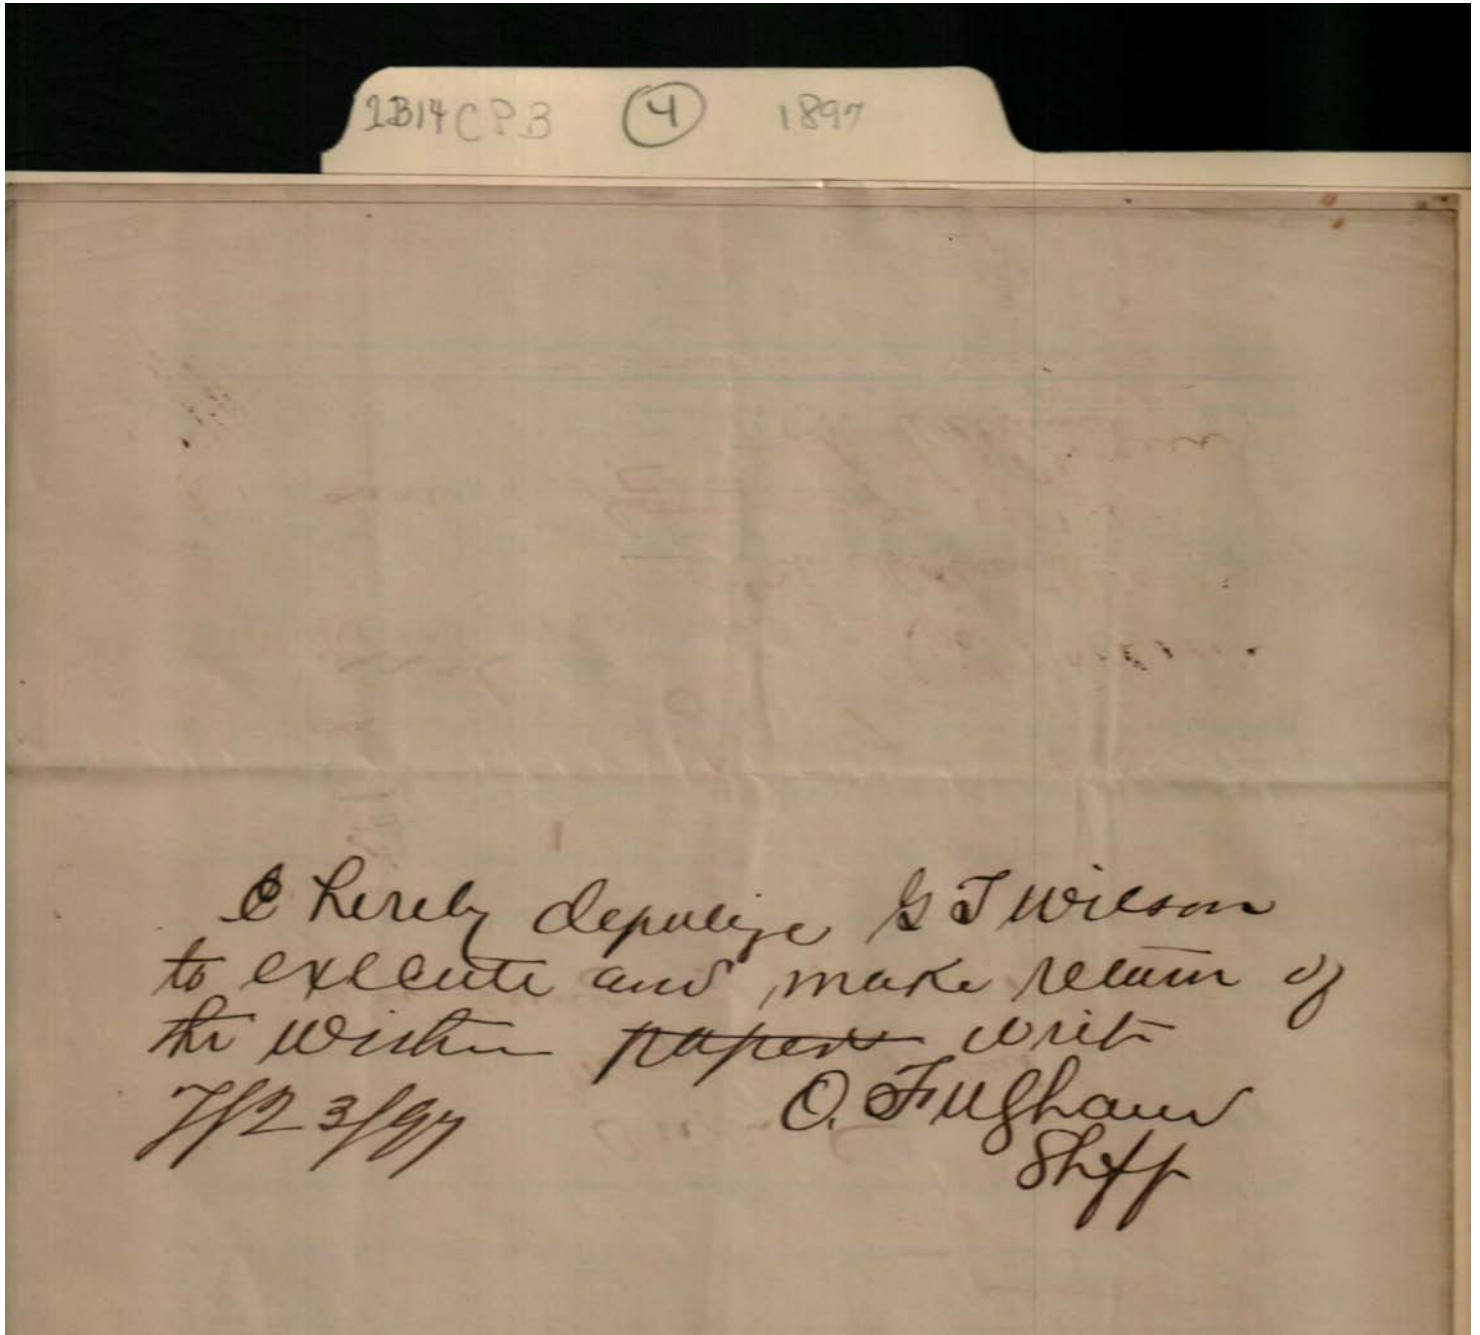 2B14CPB 4 1897
I hereby deputize G T Wilson
to execute and make return of
the within papers writ
7/23/97 O. Fulghaum
Shff